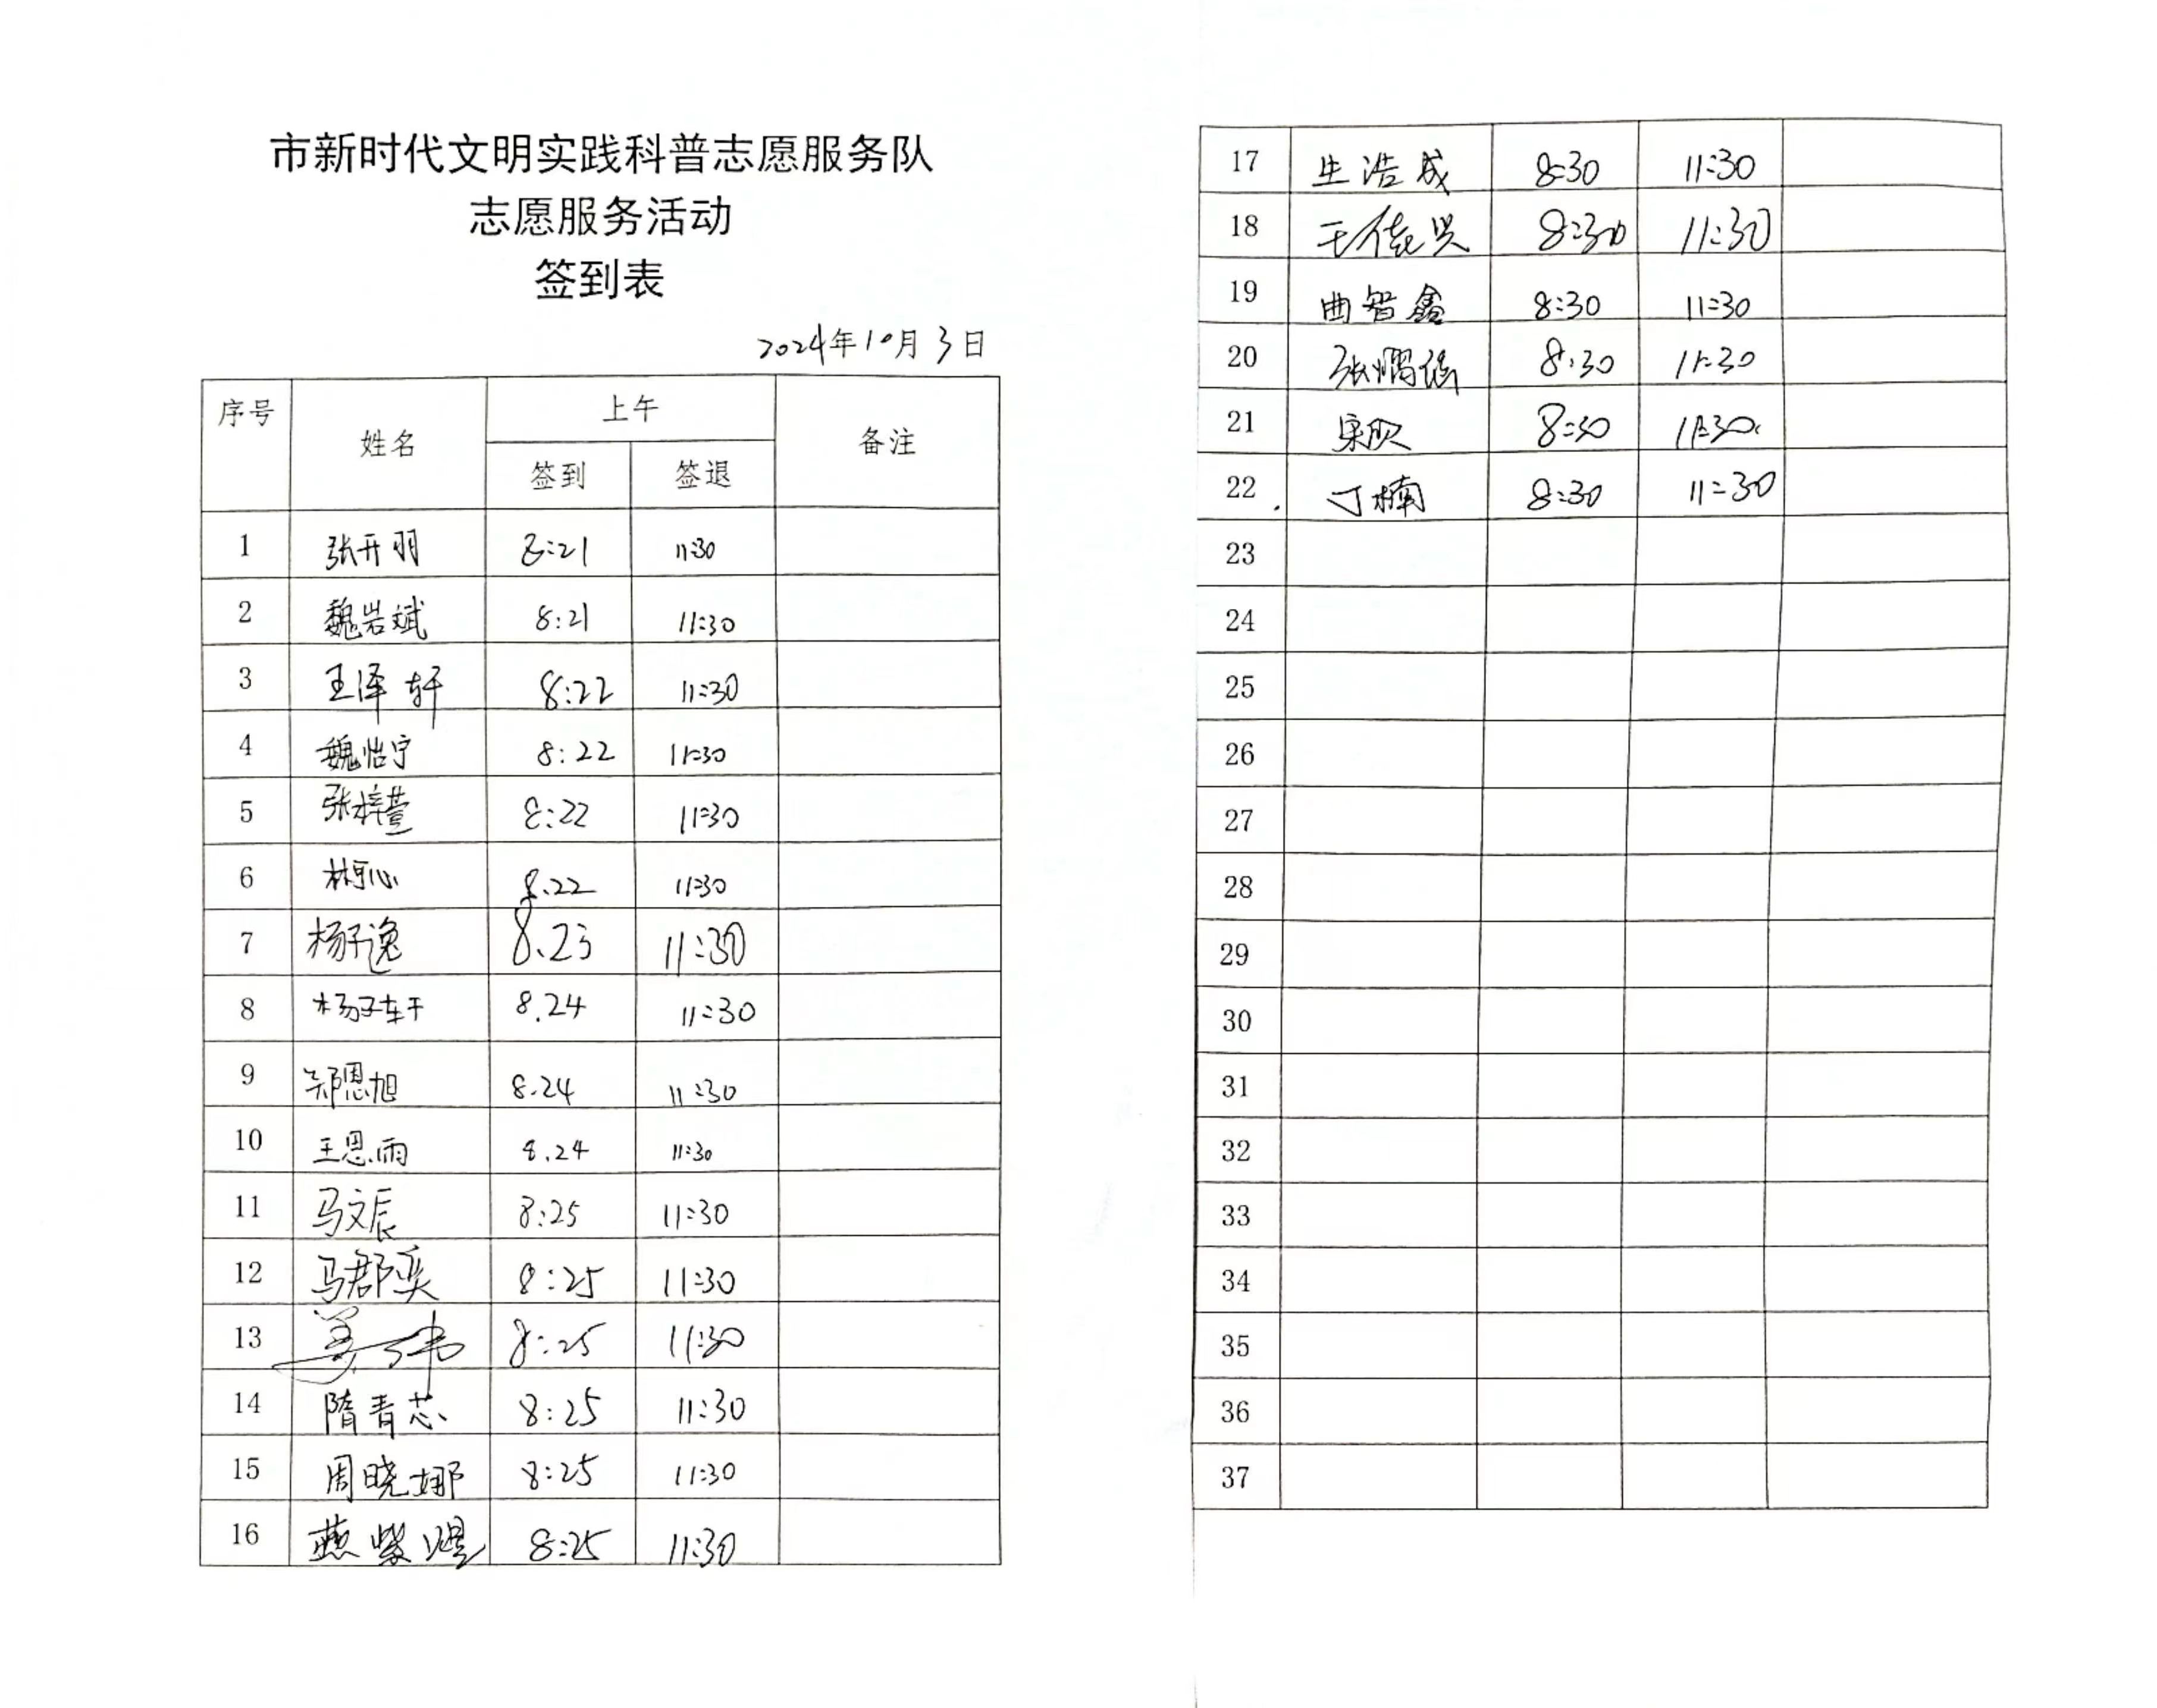 市新时代文明实践科普志愿服务队
志愿服务活动
签到表
2024年10月3日
序号 姓名 上午 备注
签到 签退
1 张开羽 8:21 11:30
2 魏岩斌 8:21 11:30
3 王泽轩 8:22 11:30
4 魏怡宁 8:22 11:30
5 张梓萱 8:22 11:30
6 林可心 8.22 11:30
7 杨子逸 8.23 11:30
8 杨子轩 8.24 11:30
9 郑恩旭 8.24 11:30
10 王恩雨 8.24 11:30
11 马文辰 8:25 11:30
12 马郡奕 8:25 11:30
13 8:25 11:30
14 隋青芯 8:25 11:30
15 周晓娜 8:25 11:30
16 燕紫 8:25 11:30
17 生浩成 8:30 11:30
18 8:30 11:30
19 曲智鑫 8:30 11:30
20 张 8:30 11:30
21 8:30 11:30
22 丁楠 8:30 11:30
23
24
25
26
27
28
29
30
31
32
33
34
35
36
37